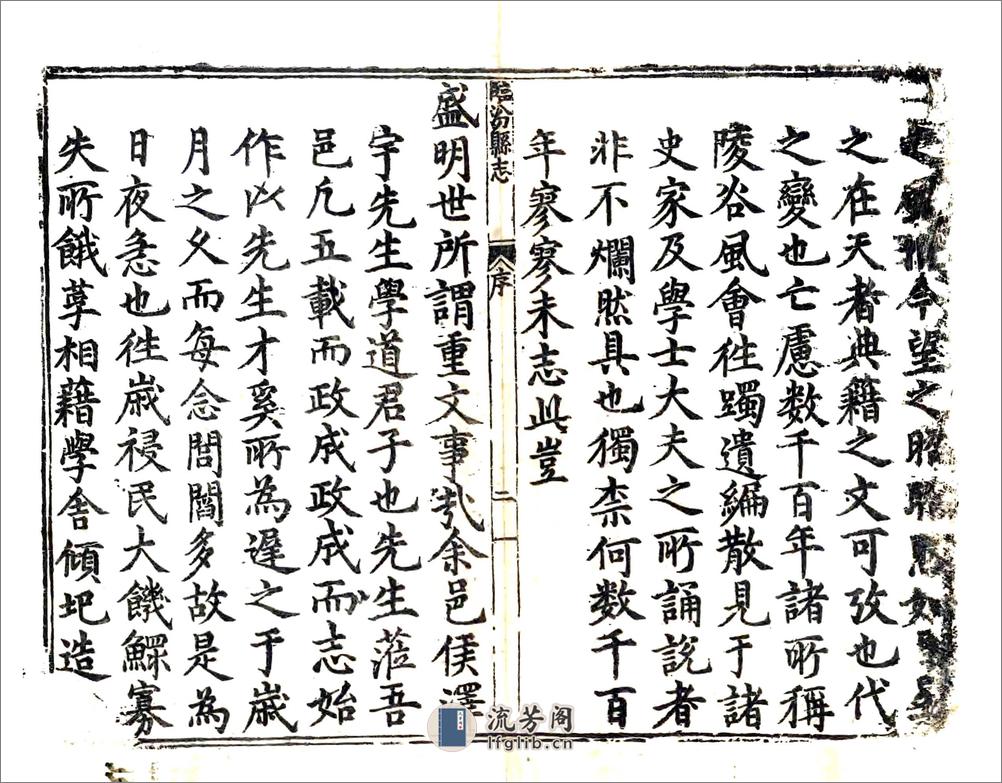 今望之昭昭如星
之在天者典籍之文可攷也代
之變也亡慮数千百年諸所稱
陵谷風會徃躅遺編散見于諸
史家及學士大夫之所誦説者
非不爛然具也獨柰何数千百
年寥寥未志此豈
臨汾縣志
序
二
盛明世所謂重文事㢤余邑侯澤
宇先生學道君子也先生蒞吾
邑凢五載而政成政成而志始
作以先生才奚所為遲之于歲
月之久而每念閭閻多故是為
日夜急也徃歲祲民大饑鰥寡
失所餓莩相藉學舍傾圮造
流芳阁
lfglib.cn